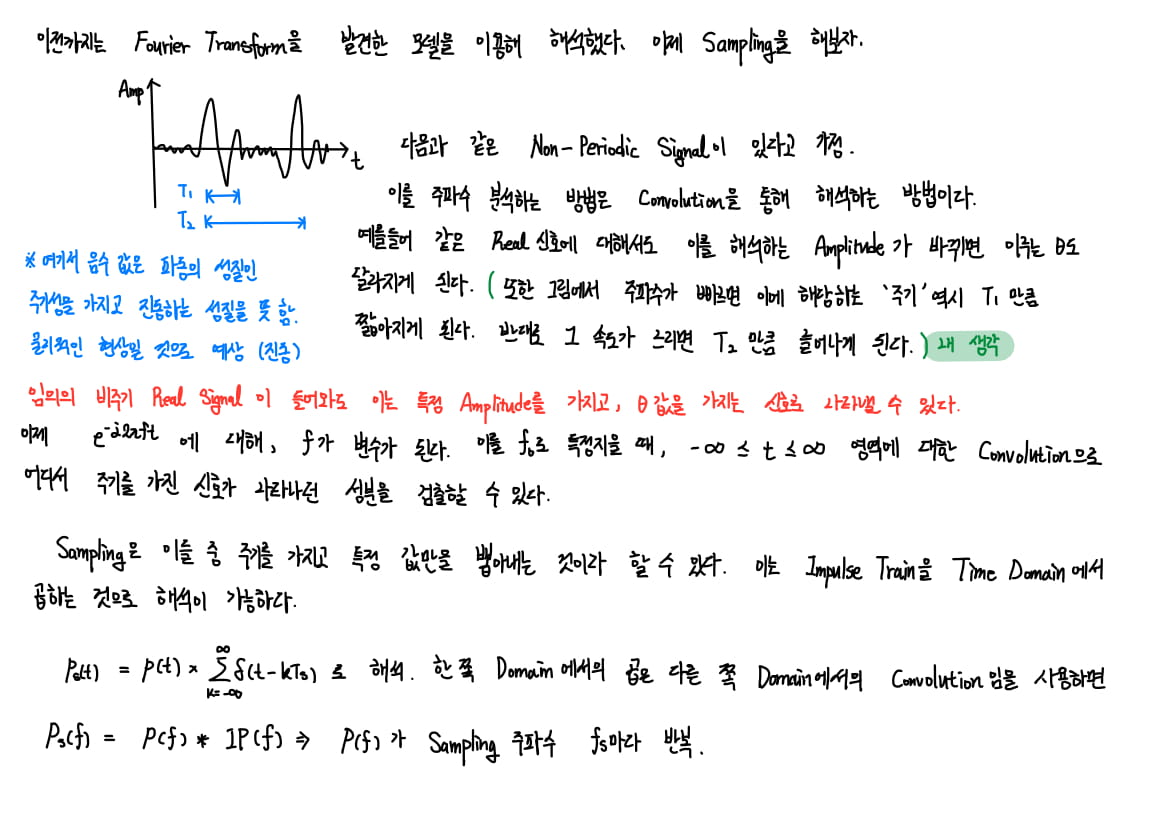 이전까지는 Fourier Transform을 발견한 모델을 이용해 해석했다. 이제 Sampling을 해보자.
Amp
t
T₁
T₂
다음과 같은 Non-Periodic Signal이 있다고 가정.
이를 주파수 분석하는 방법은 Convolution을 통해 해석하는 방법이다.
예를들어 같은 Real 신호에 대해서도 이를 해석하는 Amplitude가 바뀌면 이루는 θ도
달라지게 된다. ( 또한 그림에서 주파수가 빠르면 이에 해당하는 '주기' 역시 T₁ 만큼
짧아지게 된다. 반대로 그 속도가 느리면 T₂ 만큼 늘어나게 된다. ) 내 생각
※ 여기서 음수 값은 파동의 성질인
주기성을 가지고 진동하는 성질을 뜻 함.
물리적인 현상일 것으로 예상 (진동)
임의의 비주기 Real Signal 이 들어와도 이는 특정 Amplitude를 가지고, θ값을 가지는 신호로 나타낼 수 있다.
이제 e^{-i2πft} 에 대해, f가 변수가 된다. 이를 f₀로 특정지을 때, -∞ ≤ t ≤ ∞ 영역에 대한 Convolution으로
어디서 주기를 가진 신호가 나타나던 성분을 검출할 수 있다.
Sampling은 이들 중 주기를 가지고 특정 값만을 뽑아내는 것이라 할 수 있다. 이는 Impulse Train을 Time Domain에서
곱하는 것으로 해석이 가능하다.
Pₛ(t) = p(t) × ∑_{k=-∞}^{∞} δ(t-kTₛ) 로 해석. 한 쪽 Domain에서의 곱은 다른 쪽 Domain에서의 Convolution임을 사용하면
Pₛ(f) = P(f) * IP(f) ⇒ P(f)가 Sampling 주파수 fₛ마다 반복.